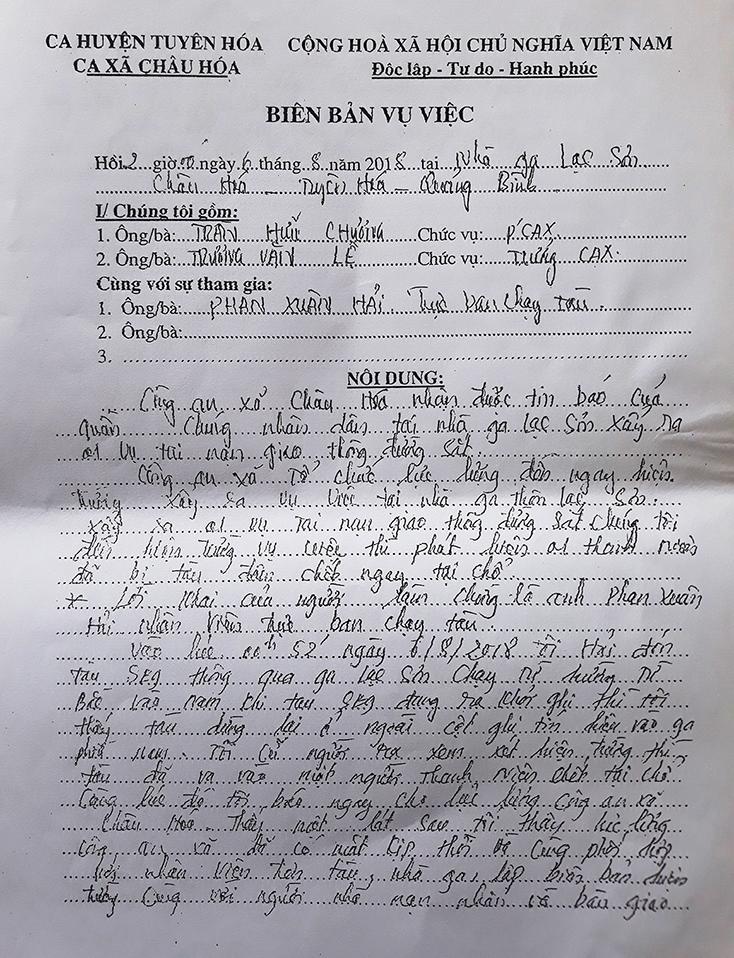 CA HUYỆN TUYÊN HÓA CỘNG HOÀ XÃ HỘI CHỦ NGHĨA VIỆT NAM
CA XÃ CHÂU HÓA Độc lập - Tư do - Hanh phúc
BIÊN BẢN VỤ VIỆC
Hồi 2 giờ 00 ngày 6 tháng 8 năm 2018 tại Nhà ga Lạc Sơn
Châu Hoá - Tuyên Hoá - Quảng Bình
I/ Chúng tôi gồm:
1. Ông/bà: TRẦN HỮU CHƯƠNG Chức vụ: P.CAX
2. Ông/bà: TRƯƠNG VĂN LỄ Chức vụ: Trưởng CAX
Cùng với sự tham gia:
1. Ông/bà: PHAN XUÂN HẢI Trực ban chạy tàu
2. Ông/bà:
3.
NÔI DUNG:
Công an xã Châu Hoá nhận được tin báo của
quần chúng nhân dân tại nhà ga lạc Sơn xảy ra
01 vụ tai nạn giao thông đường sắt.
Công an xã tổ chức lực lượng đến ngay hiện
trường xảy ra vụ việc tại nhà ga thôn lạc Sơn.
xảy ra 01 vụ tai nạn giao thông đường sắt chúng tôi
đến hiện trường vụ việc thì phát hiện 01 thanh niên
đã bị tàu đâm chết ngay tại chổ
* Lời khai của người làm chứng là anh Phan Xuân
Hải nhân viên trực ban chạy tàu.
vào lúc 00h 52' ngày 6/8/2018 Tôi Hải đón
tàu SE9 thông qua ga lạc Sơn chạy từ hướng từ
Bắc vào nam khi tàu SE9 đang ra khỏi ghi thì tôi
thấy tàu dừng lại ở ngoài cột ghi tín hiệu vào ga
phía nam. Tôi cử người ra xem xét hiện trường thì
tàu đã va vào một người thanh niên chết tại chổ
Cùng lúc đó tôi báo ngay cho lực lượng công an xã
Châu Hoá. Thấy một lát sau tôi thấy lực lượng
công an xã đã có mặt kịp thời để cùng phối hợp
với nhân viên trên tàu, nhà ga, lập biên bản hiện
trường cùng với người nhà nạn nhân và bàn giao